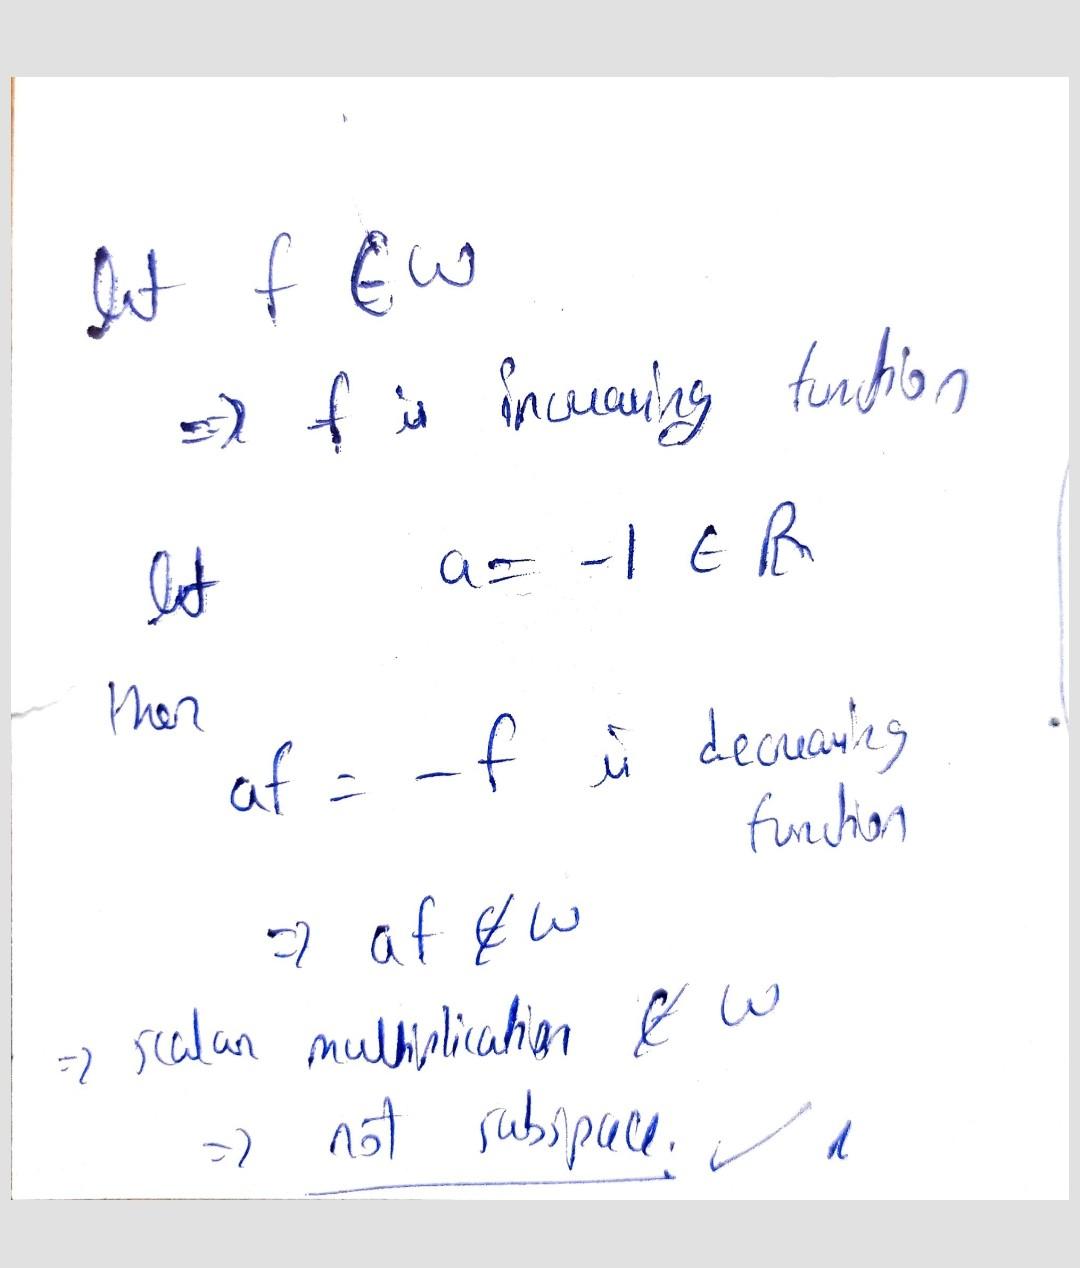 let f ∈ W
=> f is increasing function
let a = -1 ∈ R
then
af = -f is decreasing
function
=> af ∉ W
=> scalar multiplication ∉ W
=> not subspace. ✓ 1